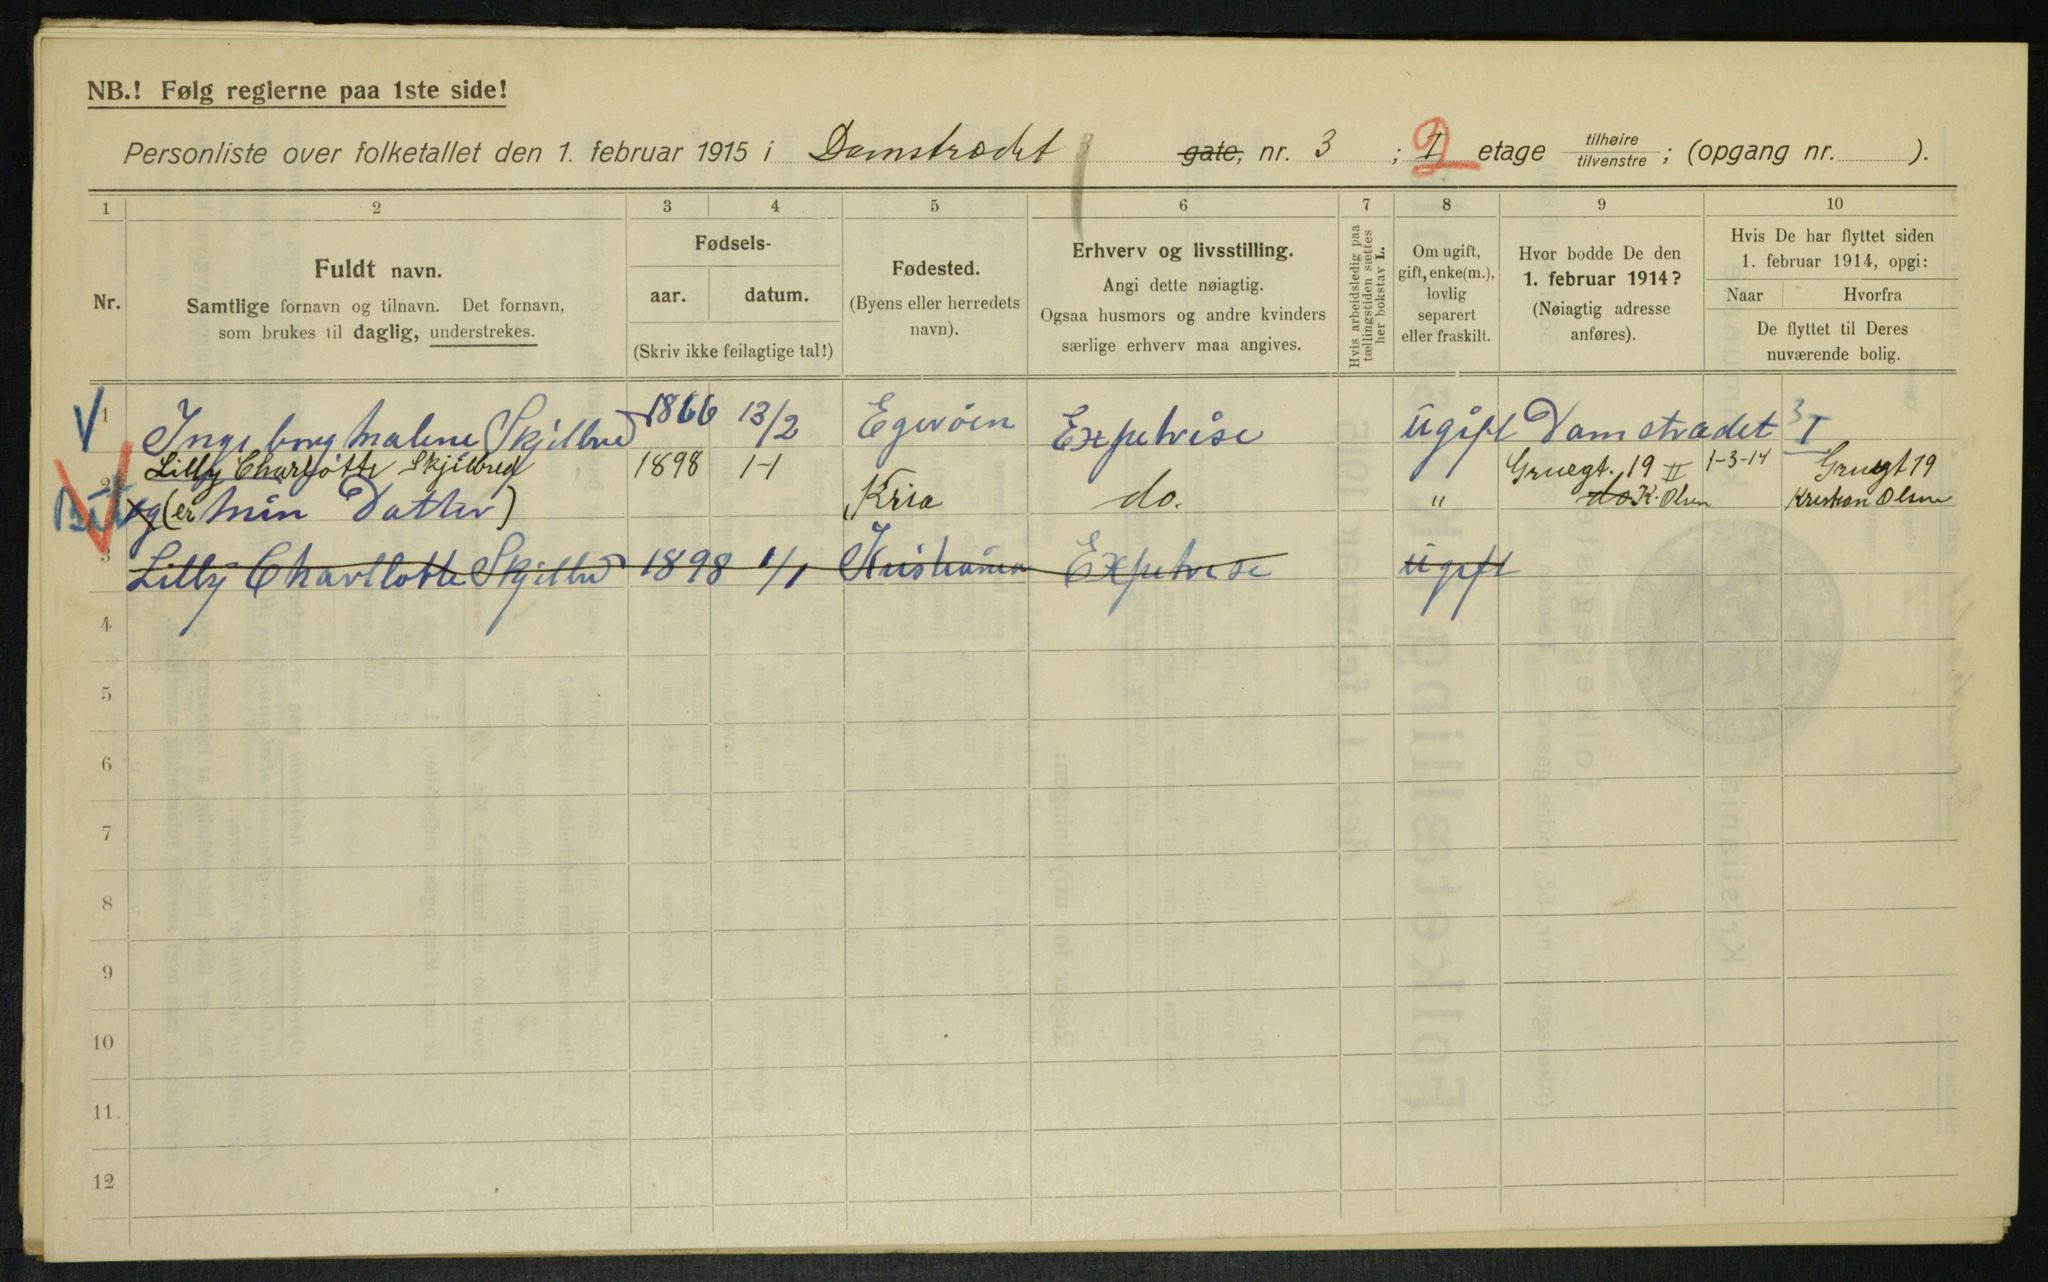 NB.! Følg reglerne paa 1ste side!
Personliste over folketallet den 1. februar 1915 i Damstrædet gate, nr. 3 ; I 2 etage tilhøire tilvenstre ; (opgang nr. ).
1 2 3 4 5 6 7 8 9 10
Nr.
Fuldt navn.
Samtlige fornavn og tilnavn. Det fornavn,
som brukes til daglig, understrekes.
Fødsels-
aar. datum.
(Skriv ikke feilagtige tal!)
Fødested.
(Byens eller herredets
navn).
Erhverv og livsstilling.
Angi dette nøiagtig.
Ogsaa husmors og andre kvinders
særlige erhverv maa angives.
Hvis arbeidsledig paa
tællingstiden sættes
her bokstav L.
Om ugift,
gift, enke(m.),
lovlig
separert
eller fraskilt.
Hvor bodde De den
1. februar 1914?
(Nøiagtig adresse
anføres).
Hvis De har flyttet siden
1. februar 1914, opgi:
Naar Hvorfra
De flyttet til Deres
nuværende bolig.
1 Ingeborg Malene Skjilbred 1866 13/2 Egerøen Expetrise ugift Damstrædet 3 I
Lilly Charlotte Skjilbred 1898 1-1 Gruegt. 19 II 1-3-14 Gruegt 19
2 og (er min Datter) Kria do. " do K. Olsen Kristian Olsen
3 Lilly Charllotte Skjilbred 1898 1/1 Kristiania Expetrise ugift
4
5
6
7
8
9
10
11.
12